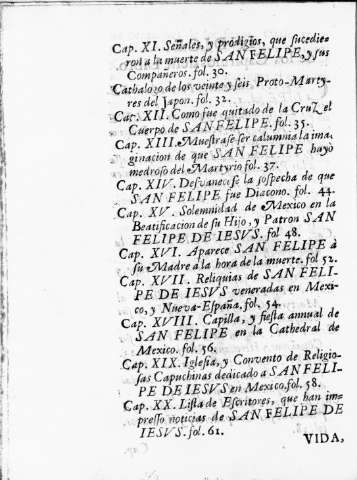 Cap. XI. Señales, y prodigios, que sucedie-
ron a la muerte de SAN FELIPE, y sus
Compañeros. fol. 30.
Cathalogo de los veinte y seis Proto-Marty-
res del Japon. fol. 32.
Cap. XII. Como fue quitado de la Cruz el
Cuerpo de SAN FELIPE. fol. 35.
Cap. XIII. Muestrase ser calumnia la ima-
ginacion de que SAN FELIPE huyò
medroso del Martyrio fol. 37.
Cap. XIV. Desvanecese la sospecha de que
SAN FELIPE fue Diacono. fol. 44.
Cap. XV. Solemnidad de Mexico en la
Beatificacion de su Hijo, y Patron SAN
FELIPE DE IESVS. fol 48.
Cap. XVI. Aparece SAN FELIPE à
su Madre a la hora de la muerte. fol 52.
Cap. XVII. Reliquias de SAN FELI-
PE DE IESVS veneradas en Mexi-
co, y Nueva-España. fol. 54.
Cap. XVIII. Capilla, y fiesta annual de
SAN FELIPE en la Cathedral de
Mexico. fol. 56.
Cap. XIX. Iglesia, y Convento de Religio-
sas Capuchinas dedicado a SAN FELI-
PE DE IESVS en Mexico. fol. 58.
Cap. XX. Lista de Escritores, que han im-
presso noticias de SAN FELIPE DE
IESVS. fol. 61.
VIDA,